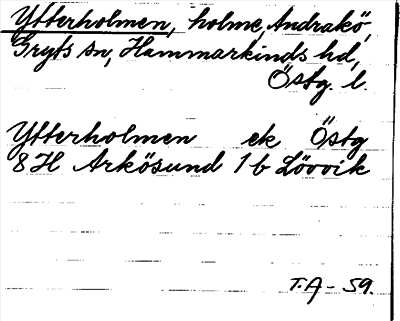 Ytterholmen, holme, Andrakö,
Gryts sn, Hammarkinds hd,
Östg. l.
Ytterholmen ek Östg
8H Arkösund 1b Lövvik
T.A - 59.